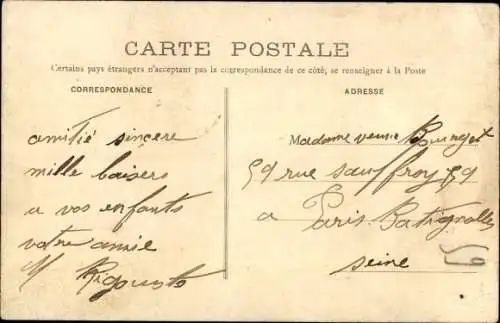 CARTE POSTALE
Certains pays étrangers n'acceptant pas la correspondance de ce côté, se renseigner à la Poste
CORRESPONDANCE
amitié sincere
mille baisers
a vos enfants
votre amie
ADRESSE
Madame veuve
59 rue sauffroy 59
a Paris Batignolles
seine